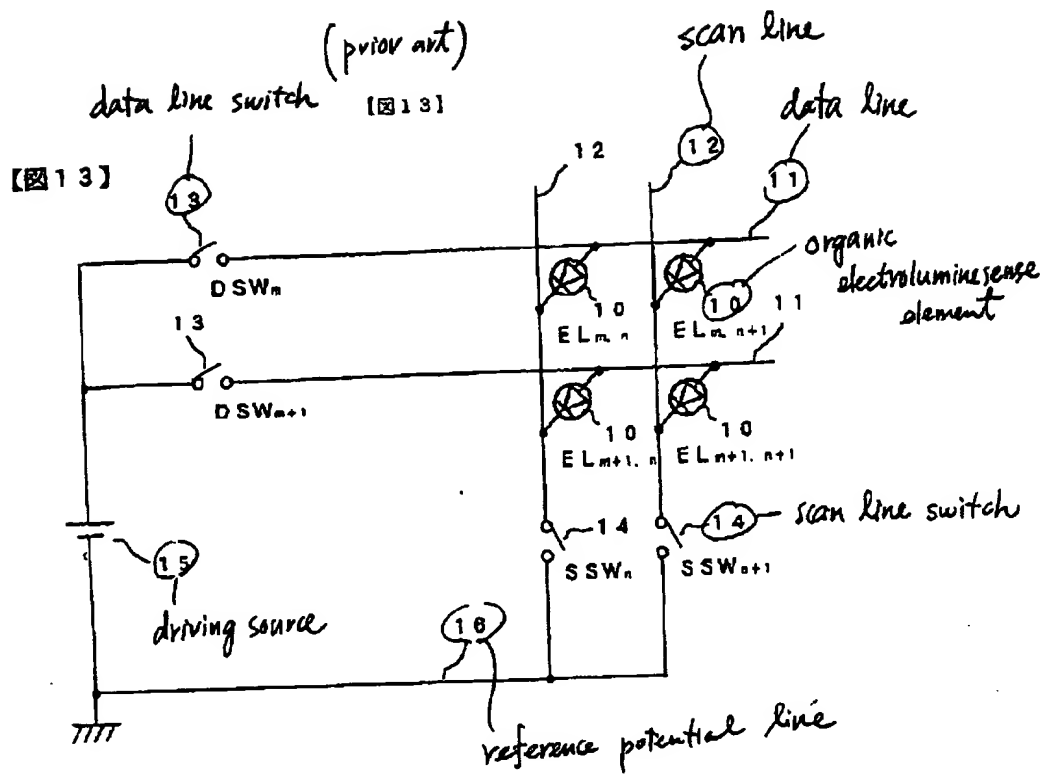 (prior art)
scan line
data line switch
【図13】
data line
【図13】
12
12
11
13
organic
electroluminesense
element
DSWm
10
ELm, n
10
ELm, n+1
11
13
DSWm+1
10
ELm+1, n
10
ELm+1, n+1
14
SSWn
14
SSWn+1
scan line switch
15
driving source
16
reference potential line